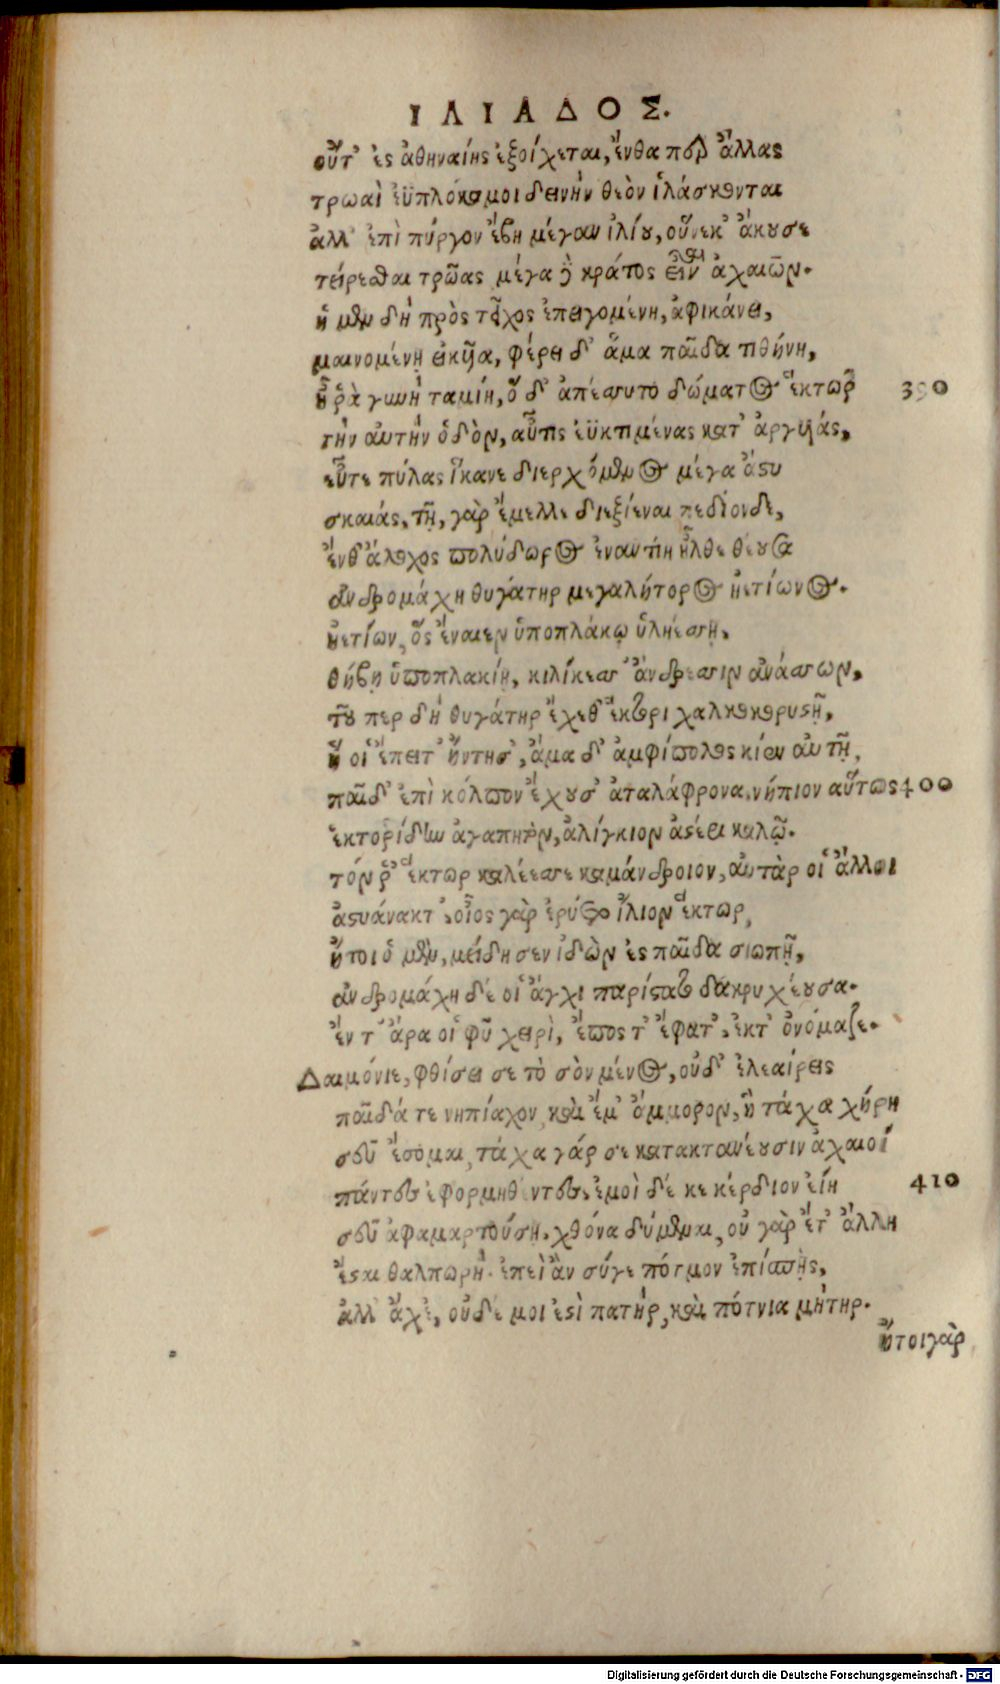 ΙΛΙΑΔΟΣ.
οὔτ' ἐς ἀθηναίης ἐξοίχεται, ἔνθα περ ἄλλας
τρωαὶ ἐϋπλόκαμοι δεινὴν θεὸν ἱλάσκονται
ἀλλ' ἐπὶ πύργον ἔβη μέγαν ἰλίου, οὕνεκ' ἄκουσε
τείρεσθαι τρῶας μέγα δὲ κράτος εἶναι ἀχαιῶν.
ἡ μὲν δὴ πρὸς τεῖχος ἐπειγομένη, ἀφικάνει,
μαινομένῃ εἰκυῖα, φέρει δ' ἅμα παῖδα τιθήνη,
ἦ ῥὰ γυνὴ ταμίη, ὅ δ' ἀπέσσυτο δώματος ἕκτωρ 390
τὴν αὐτὴν ὁδὸν, αὖτις ἐϋκτιμένας κατ' ἀργυιάς,
εὖτε πύλας ἵκανε διερχόμενος μέγα ἄστυ
σκαιάς, τῇ, γὰρ ἔμελλε διεξίεναι πεδίονδε,
ἔνθ' ἄλοχος πολύδωρος ἐναντίη ἦλθε θέουσα
ἀνδρομάχη θυγάτηρ μεγαλήτορος ἠετίωνος.
ἠετίων, ὃς ἔναιεν ὑποπλάκῳ ὑληέσσῃ,
θήβῃ ὑποπλακίῃ, κιλίκεσσ' ἄνδρεσσιν ἀνάσσων,
τοῦ περ δὴ θυγάτηρ ἔχεθ' ἕκτορι χαλκοκορυστῇ,
ἥ οἱ ἔπειτ' ἤντησ', ἅμα δ' ἀμφίπολος κίεν αὐτῇ,
παῖδ' ἐπὶ κόλπον ἔχουσ' ἀταλάφρονα, νήπιον αὕτως 400
ἑκτορίδην ἀγαπητὸν, ἀλίγκιον ἀστέρι καλῷ.
τόν ῥ' ἕκτωρ καλέεσσε καμάνδροιον, αὐτὰρ οἱ ἄλλοι
ἀστυάνακτ', οἶος γὰρ ἐρύετο ἴλιον ἕκτωρ,
ἤτοι ὁ μὲν, μείδησεν ἰδὼν ἐς παῖδα σιωπῇ,
ἀνδρομάχη δέ οἱ ἄγχι παρίστατο δάκρυ χέουσα.
ἔν τ' ἄρα οἱ φῦ χειρὶ, ἔπος τ' ἔφατ', ἐκτ' ὀνόμαζε.
Δαιμόνιε, φθίσει σε τὸ σὸν μένος, οὐδ' ἐλεαίρεις
παῖδά τε νηπίαχον, καὶ ἔμ' ἄμμορον, ἣ τάχα χήρη
σεῦ ἔσομαι, τάχα γάρ σε κατακτανέουσιν ἀχαιοί
πάντες ἐφορμηθέντες, ἐμοὶ δέ κε κέρδιον εἴη 410
σεῦ ἀφαμαρτούσῃ, χθόνα δύμεναι, οὐ γὰρ ἔτ' ἄλλη
ἔσται θαλπωρὴ. ἐπεὶ ἂν σύγε πότμον ἐπίσπῃς,
ἀλλ' ἄχε', οὐδέ μοι ἐστὶ πατὴρ, καὶ πότνια μήτηρ.
ἤτοι γὰρ
Digitalisierung gefördert durch die Deutsche Forschungsgemeinschaft - DFG